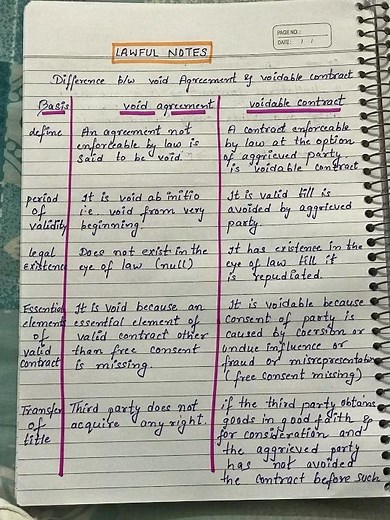 PAGE NO.:
DATE: / /
LAWFUL NOTES
Difference b/w void Agreement & voidable contract
Basis void agreement voidable contract
define
An agreement not
enforceable by law is
said to be void.
A contract enforceable
by law at the option
of aggrieved party
is voidable contract
period
of
validity
It is void ab initio
i.e. void from very
beginning!
It is valid till is
avoided by aggrieved
party
legal
existence
Does not exist in the
eye of law (null)
It has existence in the
eye of law till it
is repudiated.
Essential
elements
of
valid
contract
It is void because an
essential element of
valid contract other
than free consent
is missing.
It is voidable because
consent of party is
caused by coersion or
undue influence or
fraud or misrepresentation
(free consent missing)
Transfer
of
title
Third party does not
acquire any right.
if the third party obtans
goods in good faith &
for consideration and
the aggrieved party
has not avoided
the contract before such